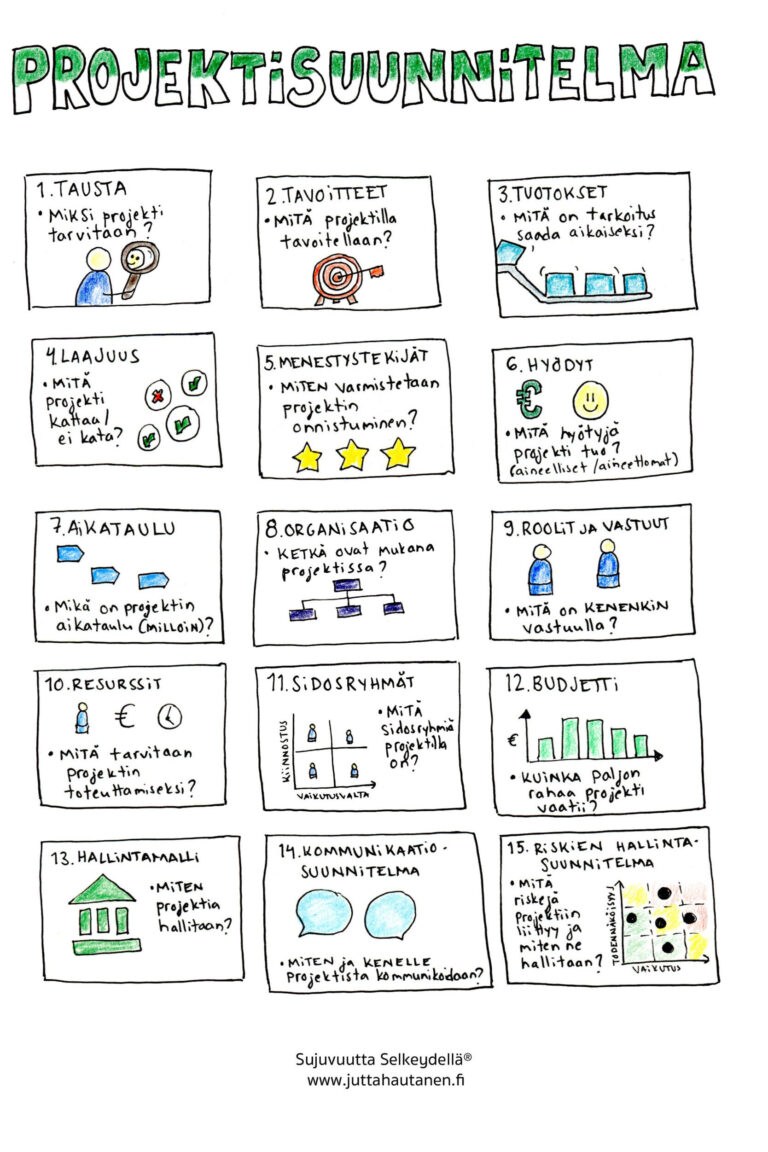 PROJEKTiSUUNNiTELMA
1.TAUSTA
• MiKSi projekti
tarvitaan?
2.TAVOiTTEET
• MiTÄ projektilla
tavoitellaan?
3.TUOTOKSET
• MiTÄ on tarkoitus
saada aikaiseksi?
4.LAAJUUS
• MiTÄ
projekti
kattaa/
ei kata?
5.MENESTYSTEKiJÄT
• MiTEN varmistetaan
projektin
onnistuminen?
6. HYÖDYT
€
• MiTÄ hyötyjä
projekti tuo?
(aineelliset/aineettomat)
7.AiKATAULU
• Mikä on projektin
aikataulu (MiLLOiN)?
8.ORGANiSAATiO
• KETKÄ ovat mukana
projektissa?
9.ROOLiT JA VASTUUT
• MiTÄ on KENENKiN
vastuulla?
10.RESURSSiT
€
• MiTÄ tarvitaan
projektin
toteuttamiseksi?
11.SiDOSRYHMÄT
• MiTÄ
sidosryhmiä
projektilla
on?
KiiNNOSTUS
VAiKUTUSVALTA
12.BUDJETTi
€
• KUiNKA paljon
rahaa projekti
vaatii?
13.HALLiNTAMALLi
• MiTEN
projektia
hallitaan?
14.KOMMUNiKAATiO-
SUUNNiTELMA
• MiTEN ja KENELLE
projektista kommunikoidaan?
15.RiSKiEN HALLiNTA-
SUUNNiTELMA
• MiTÄ
riskejä
projektiin
liittyy ja
miten ne
hallitaan?
TODENNÄKÖiSYYS
VAiKUTUS
Sujuvuutta Selkeydellä®
www.juttahautanen.fi